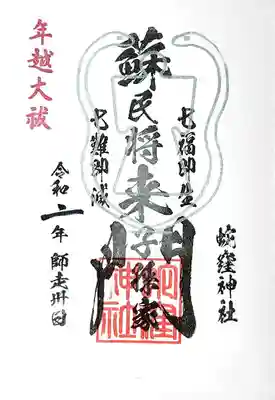 蛇窪神社
七福即生
蘇民将来子孫家門
七難即滅
令和二年師走卅日
年越大祓